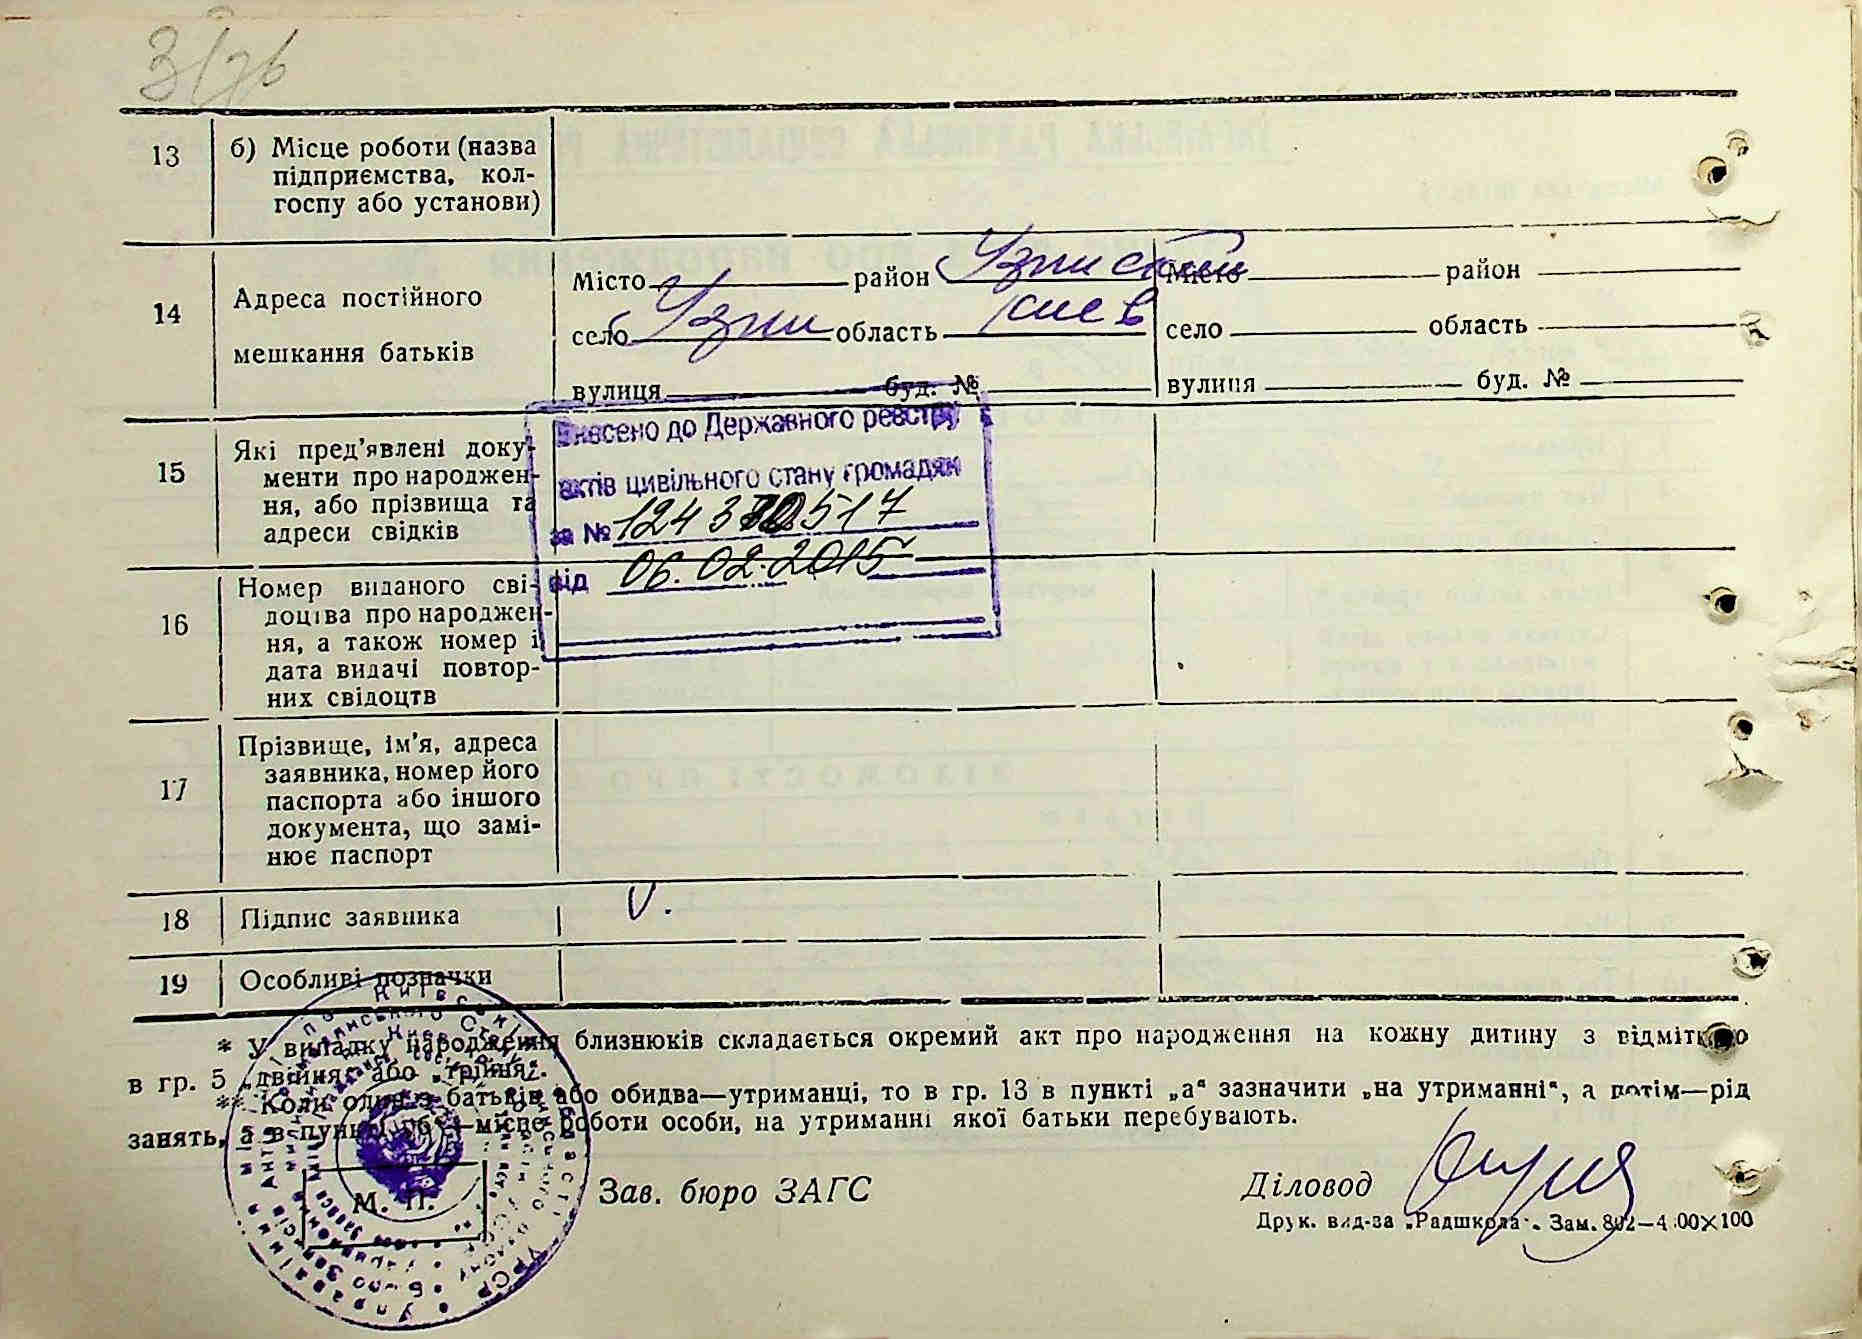 13 б) Місце роботи (назва
підприємства, кол-
госпу або установи)
14 Адреса постійного
мешкання батьків
Місто район Узинський
село Узин область Киев
вулиця буд. №
Місто район
село область
вулиця буд. №
15 Які пред'явлені доку-
менти про народжен-
ня, або прізвища та
адреси свідків
Внесено до Державного реєстру
актів цивільного стану громадян
за №
від 06.02.2015
16 Номер виданого сві-
доцтва про народжен-
ня, а також номер і
дата видачі повтор-
них свідоцтв
17 Прізвище, ім'я, адреса
заявника, номер його
паспорта або іншого
документа, що замі-
нює паспорт
18 Підпис заявника
19 Особливі позначки
* У випадку народження близнюків складається окремий акт про народження на кожну дитину з відміткою
в гр. 5 „двійня" або „трійня".
** Коли один з батьків або обидва—утриманці, то в гр. 13 в пункті „а" зазначити „на утриманні", а потім—рід
занять, а в пункті „б"—місце роботи особи, на утриманні якої батьки перебувають.
М. П.
Зав. бюро ЗАГС
Діловод
Друк. вид-ва „Радшкола".